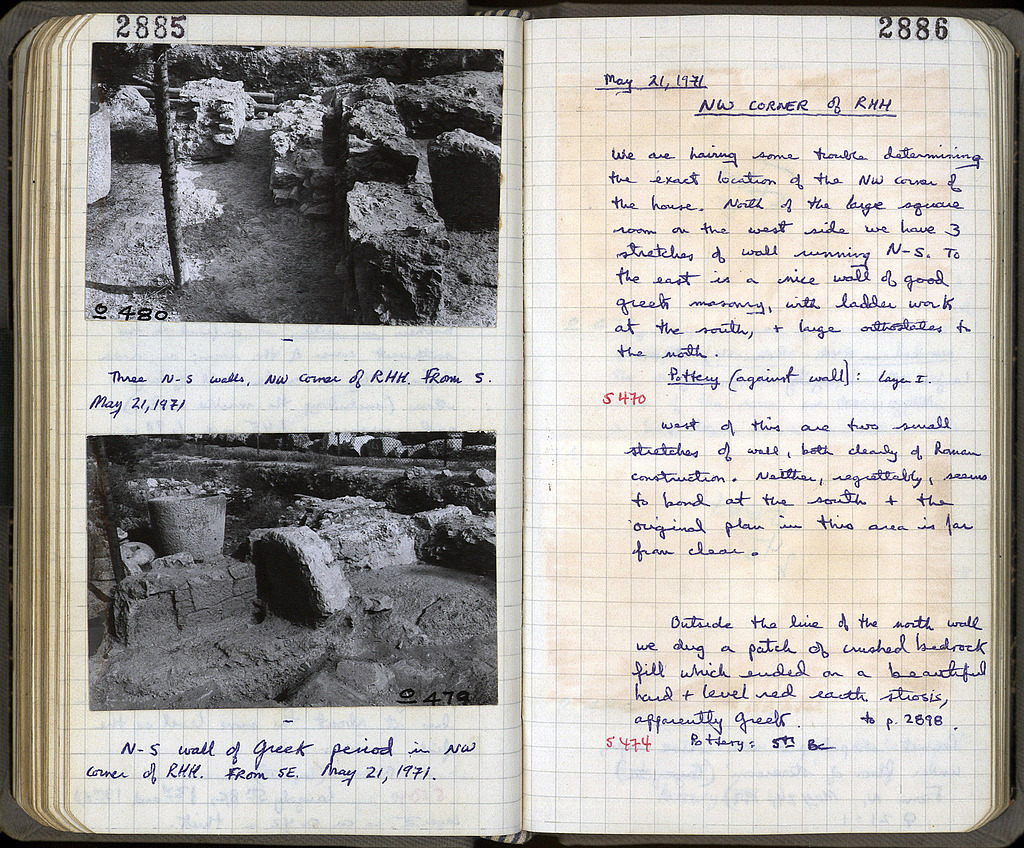 2885
O 480
Three N-S walls, NW corner of RHH. From S.
May 21, 1971
O 479
N-S wall of Greek period in NW
corner of RHH. From SE. May 21, 1971.
2886
May 21, 1971
NW CORNER of RHH
We are having some trouble determining
the exact location of the NW corner of
the house. North of the large square
room on the west side we have 3
stretches of wall running N-S. To
the east is a nice wall of good
greek masonry, with ladder work
at the south, + large orthostates to
the north.
Pottery (against wall): Layer I.
S 470
West of this are two small
stretches of wall, both clearly of Roman
construction. Neither, regrettably, seems
to bond at the south + the
original plan in this area is far
from clear.
Outside the line of the north wall
we dug a patch of crushed bedrock
fill which ended on a beautiful
hard + level red earth strosis,
apparently Greek. to p. 2898.
S 474 Pottery: 5th BC